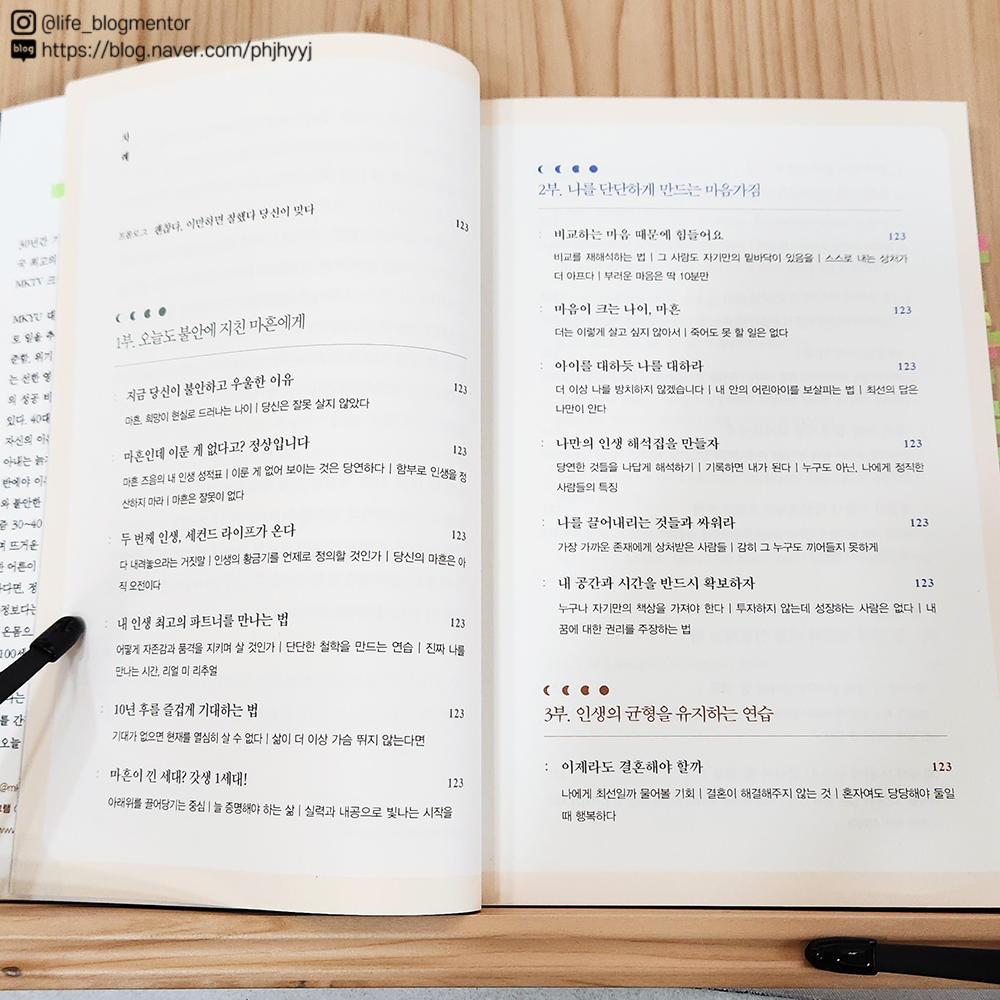 @life_blogmentor
blog https://blog.naver.com/phjhyyj
30년간
국 최고의
MKTV 크
MKYU 대
로 일을 추
준함, 위기
는 선한 영
의 성공 비
있다. 40대
자신의 이
아내는 늙
반에야 이
와 불안한
즘 30~40
며 뜨거운
한 어른이
정보다는
온몸으
100세
를 간
오늘
차
례
프롤로그 괜찮다, 이만하면 잘했다 당신이 맞다 123
1부. 오늘도 불안에 지친 마흔에게
지금 당신이 불안하고 우울한 이유 123
마흔, 희망이 현실로 드러나는 나이 | 당신은 잘못 살지 않았다
마흔인데 이룬 게 없다고? 정상입니다 123
마흔 즈음의 내 인생 성적표 | 이룬 게 없어 보이는 것은 당연하다 | 함부로 인생을 정
산하지 마라 | 마흔은 잘못이 없다
두 번째 인생, 세컨드 라이프가 온다 123
다 내려놓으라는 거짓말 | 인생의 황금기를 언제로 정의할 것인가 | 당신의 마흔은 아
직 오전이다
내 인생 최고의 파트너를 만나는 법 123
어떻게 자존감과 품격을 지키며 살 것인가 | 단단한 철학을 만드는 연습 | 진짜 나를
만나는 시간, 리얼 미 리추얼
10년 후를 즐겁게 기대하는 법 123
기대가 없으면 현재를 열심히 살 수 없다 | 삶이 더 이상 가슴 뛰지 않는다면
마흔이 낀 세대? 갓생 1세대! 123
아래위를 끌어당기는 중심 | 늘 증명해야 하는 삶 | 실력과 내공으로 빛나는 시작을
2부. 나를 단단하게 만드는 마음가짐
비교하는 마음 때문에 힘들어요 123
비교를 재해석하는 법 | 그 사람도 자기만의 밑바닥이 있음을 | 스스로 내는 상처가
더 아프다 | 부러운 마음은 딱 10분만
마음이 크는 나이, 마흔 123
더는 이렇게 살고 싶지 않아서 | 죽어도 못 할 일은 없다
아이를 대하듯 나를 대하라 123
더 이상 나를 방치하지 않겠습니다 | 내 안의 어린아이를 보살피는 법 | 최선의 답은
나만이 안다
나만의 인생 해석집을 만들자 123
당연한 것들을 나답게 해석하기 | 기록하면 내가 된다 | 누구도 아닌, 나에게 정직한
사람들의 특징
나를 끌어내리는 것들과 싸워라 123
가장 가까운 존재에게 상처받은 사람들 | 감히 그 누구도 끼어들지 못하게
내 공간과 시간을 반드시 확보하자 123
누구나 자기만의 책상을 가져야 한다 | 투자하지 않는데 성장하는 사람은 없다 | 내
꿈에 대한 권리를 주장하는 법
3부. 인생의 균형을 유지하는 연습
이제라도 결혼해야 할까 123
나에게 최선일까 물어볼 기회 | 결혼이 해결해주지 않는 것 | 혼자여도 당당해야 둘일
때 행복하다